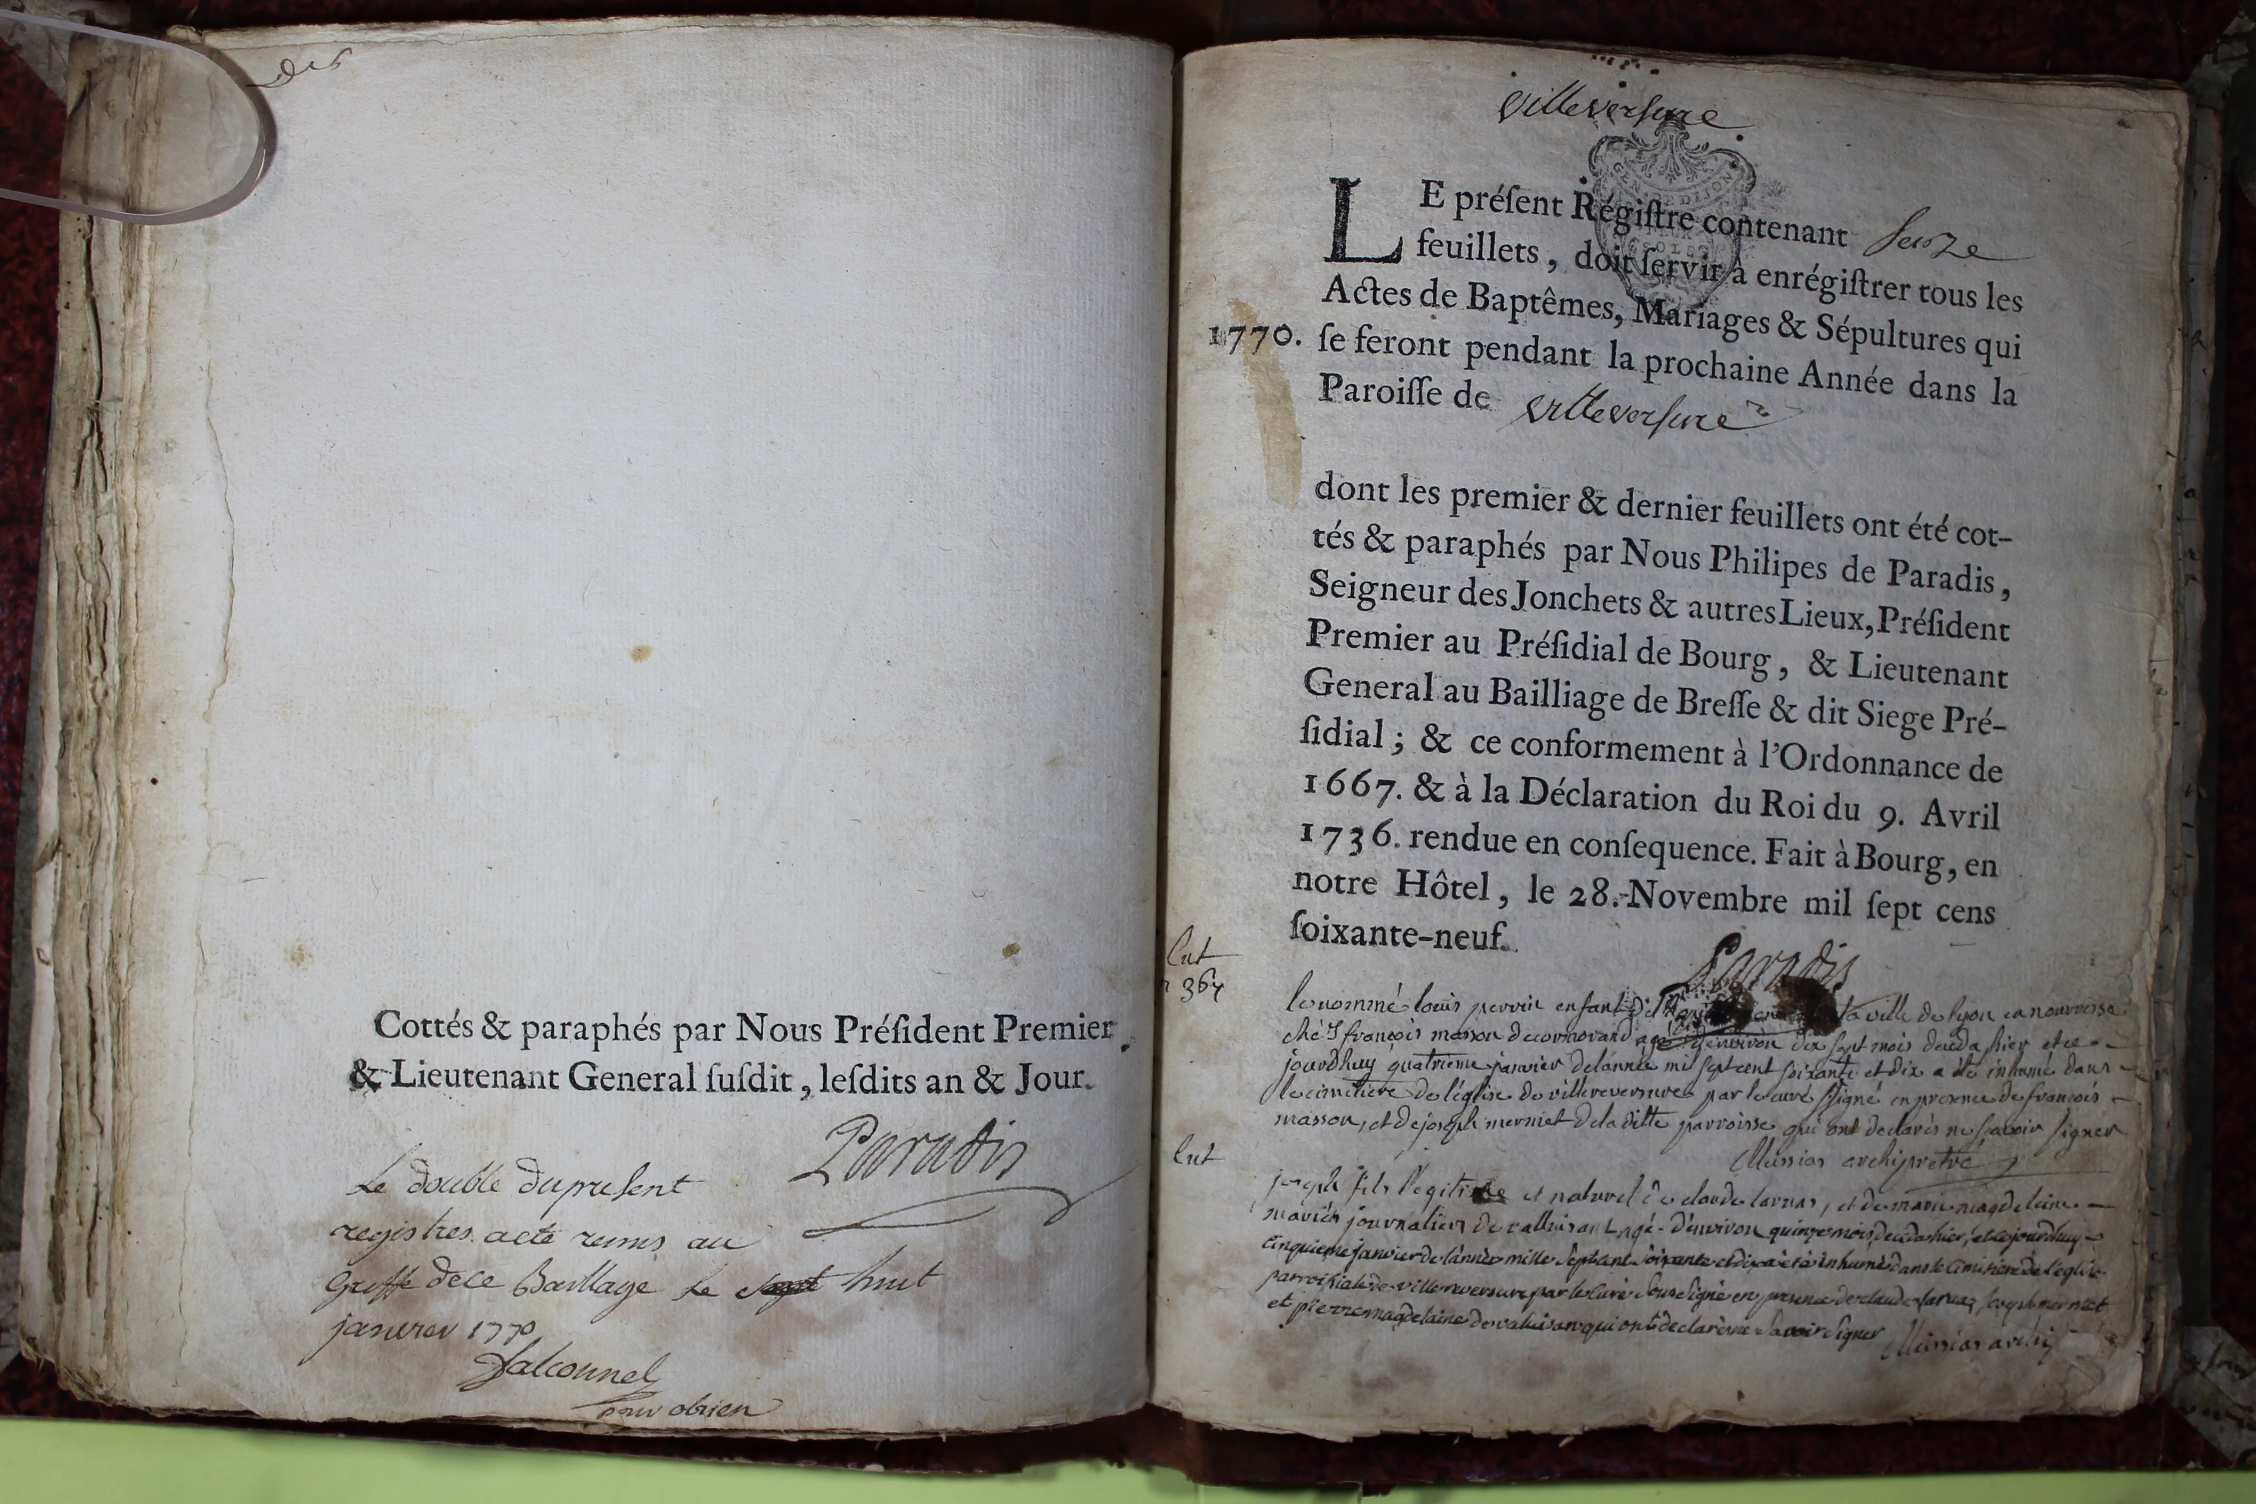 Cottés & paraphés par Nous Préſident Premier
& Lieutenant General ſuſdit, leſdits an & Jour.
Paradis
Le double du preſent
registres a eté remis au
Greffe de ce Baillage le huit
janvier 1770
villeverſure
LE préſent Régiſtre contenant ſeize
feuillets, doit ſervir à enrégiſtrer tous les
Actes de Baptêmes, Mariages & Sépultures qui
1770. ſe feront pendant la prochaine Année dans la
Paroiſſe de villeverſure
dont les premier & dernier feuillets ont été cot-
tés & paraphés par Nous Philipes de Paradis,
Seigneur des Jonchets & autres Lieux, Préſident
Premier au Préſidial de Bourg, & Lieutenant
General au Bailliage de Breſſe & dit Siege Pré-
ſidial; & ce conformement à l'Ordonnance de
1667. & à la Déclaration du Roi du 9. Avril
1736. rendue en conſequence. Fait à Bourg, en
notre Hôtel, le 28. Novembre mil ſept cens
ſoixante-neuf.
Paradis
le nommé louis perrin enfant de la ville de lyon en nourrisse
ché françois masson de cormorand agé d'environ dix sept mois decedа hier et ce
jourdhuy quatrieme janvier de l'année mil sept cent soixante et dix a été inhumé dans
le cimetiere de l'église de villereversure par le curé ssigné en presence de francois
masson, et de joseph mermet de la ditte parroisse qui ont declarés ne scavoir signer
archiprétre
joseph fils légitime et naturel de claude, et de marie magdeleine
mariés journaliers de agé d'environ quinze mois decedа hier, et ce jourdhuy
cinquieme janvier de l'année mille sept cent soixante et dix a été inhumé dans le cimetiere de l'eglise
parroissiale de villereversure par le curé soussigné en presence de claude joseph mermet
et pierre magdelaine de qui ont declaré ne scavoir signer